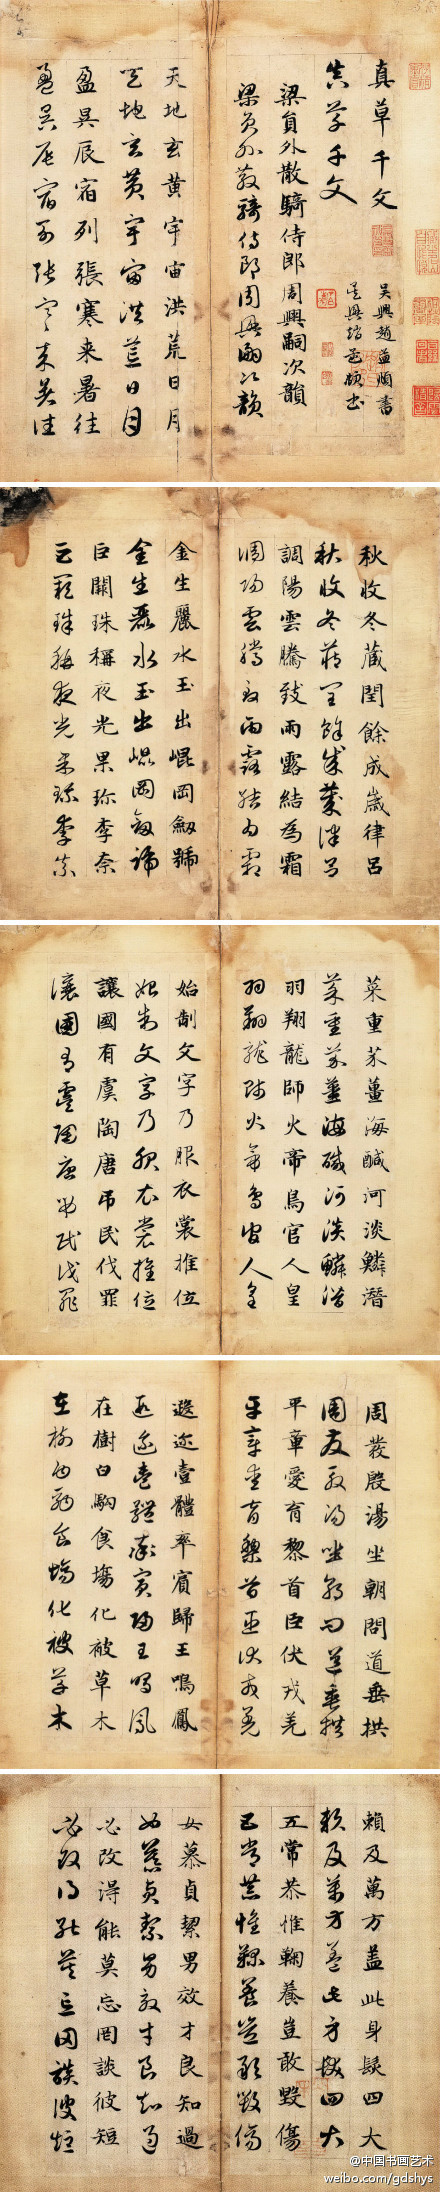 真草千文
真草千文
吳興趙孟頫書
吳興趙孟頫書
梁員外散騎侍郎周興嗣次韻
梁員外散騎侍郎周興嗣次韻
天地玄黃宇宙洪荒日月
天地玄黃宇宙洪荒日月
盈昃辰宿列張寒来暑往
盈昃辰宿列張寒来暑往
秋收冬藏閏餘成歲律呂
秋收冬藏閏餘成歲律呂
調陽雲騰致雨露結為霜
調陽雲騰致雨露結為霜
金生麗水玉出崐岡劒號
金生麗水玉出崐岡劒號
巨闕珠稱夜光果珍李柰
巨闕珠稱夜光果珍李柰
菜重芥薑海鹹河淡鱗潛
菜重芥薑海鹹河淡鱗潛
羽翔龍師火帝鳥官人皇
羽翔龍師火帝鳥官人皇
始制文字乃服衣裳推位
始制文字乃服衣裳推位
讓國有虞陶唐弔民伐罪
讓國有虞陶唐弔民伐罪
周發殷湯坐朝問道垂拱
周發殷湯坐朝問道垂拱
平章愛育黎首臣伏戎羌
平章愛育黎首臣伏戎羌
遐迩壹體率賓歸王鳴鳳
遐迩壹體率賓歸王鳴鳳
在樹白駒食場化被草木
在樹白駒食場化被草木
賴及萬方蓋此身髮四大
賴及萬方蓋此身髮四大
五常恭惟鞠養豈敢毀傷
五常恭惟鞠養豈敢毀傷
女慕貞絜男效才良知過
女慕貞絜男效才良知過
必改得能莫忘罔談彼短
必改得能莫忘罔談彼短
@中国书画艺术
weibo.com/gdshys